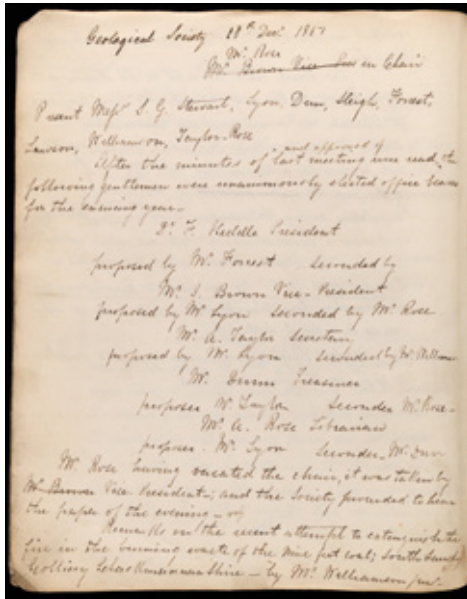 Geological Society 18th Decr. 1851
Mr. Rose
Mr. Brown Vice in Chair
Present Messrs S. G. Stewart, Lyon, Dunn, Sleigh, Forrest,
Lawson, Williamson, Taylor, Rose
and approved of
After the minutes of last meeting were read the
following gentlemen were unanimously elected office bearers
for the ensuing year.
Dr. F. Heddle President
proposed by Mr. Forrest seconded by
Mr. J. Brown Vice-President
proposed by Mr Lyon seconded by Mr Rose
Mr. A. Taylor Secretary
proposed by Mr. Lyon seconded by Mr William
Mr. Dunn Treasurer
proposer Mr. Taylor Seconder Mr. Rose
Mr. A. Rose Librarian
proposer Mr. Lyon Seconder Mr. Dunn
Mr. Rose having vacated the chair, it was taken by
Mr. Brown Vice President, and the Society proceeded to hear
the paper of the evening
Remarks on the recent attempt to extinguish the
fire in the burning waste of the nine feet coal; South
Colliery Clackmannanshire - by Mr. Williamson junr.